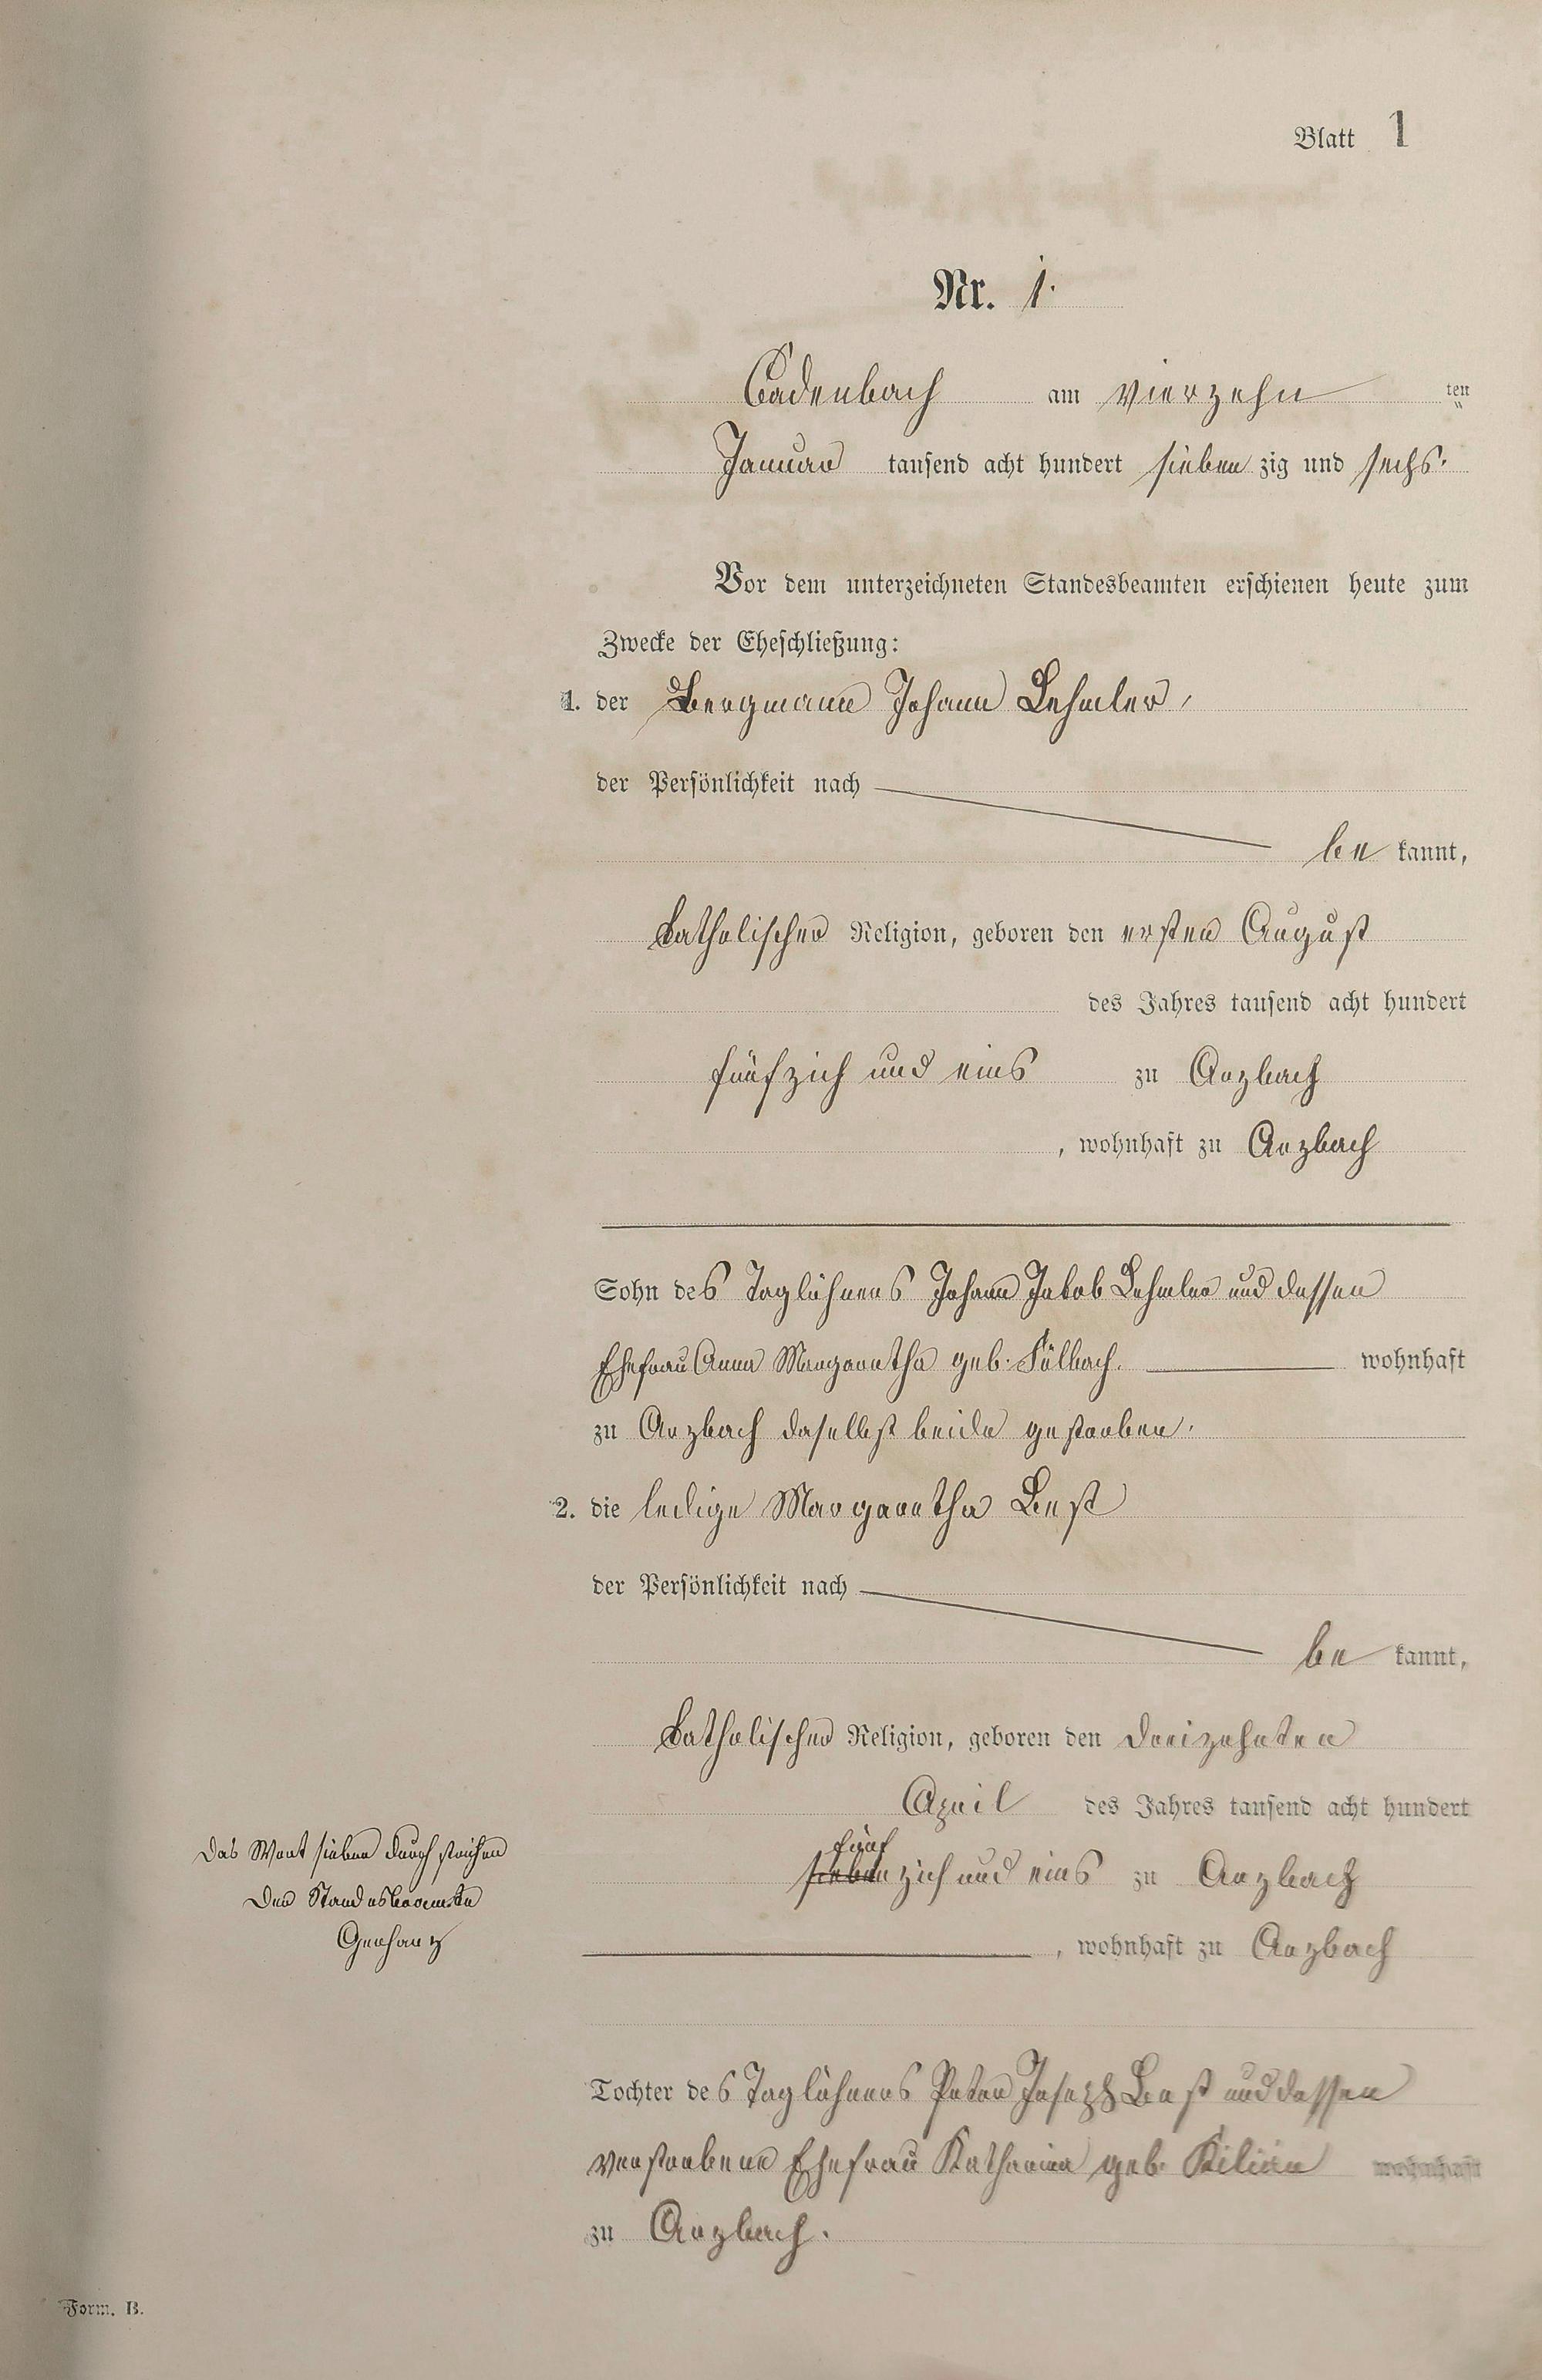 Blatt 1
Nr. 1.
Cadenbach am vierzehn ten
Januar tausend acht hundert sieben zig und sechs.
Vor dem unterzeichneten Standesbeamten erschienen heute zum
Zwecke der Eheschließung:
1. der Bergmann Johann Lehmler,
der Persönlichkeit nach
be kannt,
katholischer Religion, geboren den ersten August
des Jahres tausend acht hundert
fünfzich und eins zu Arzbach
, wohnhaft zu Arzbach
Sohn des Taglöhners Johann Jakob Lehmler und dessen
Ehefrau Anna Margaretha geb. wohnhaft
zu Arzbach daselbst beide gestorben.
2. die ledige Margaretha Best
der Persönlichkeit nach
be kannt,
katholischer Religion, geboren den dreizehnten
April des Jahres tausend acht hundert
fünf
siebenzich und eins zu Arzbach
, wohnhaft zu Arzbach
Das Wort sieben durchstrichen
Der Standesbeamte
Gerharz
Tochter des Taglöhners Peter Joseph Best und dessen
verstorbene Ehefrau Katharina geb. Kilian wohnhaft
zu Arzbach.
Form. B.